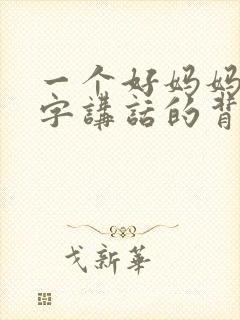 一个好妈妈
字講話的背
戈新華